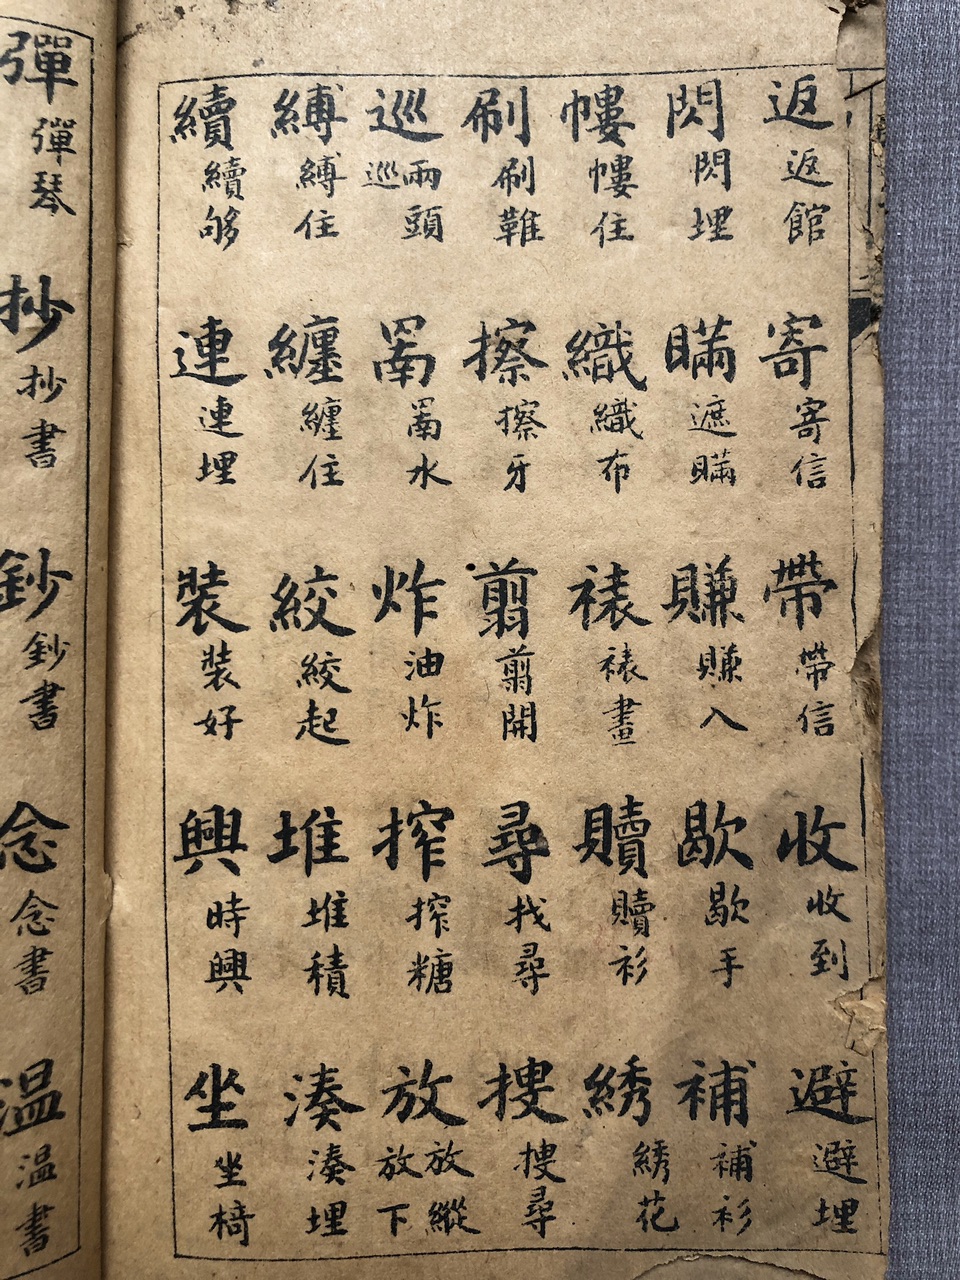 返 返館 寄 寄信 帶 帶信 收 收到 避 避埋
閃 閃埋 瞞 遮瞞 賺 賺入 歇 歇手 補 補衫
㡞 㡞住 織 織布 裱 裱畫 贖 贖衫 綉 綉花
刷 刷 擦 擦牙 翦 翦開 尋 找尋 搜 搜尋
巡 巡兩頭 罱 罱水 炸 油炸 搾 搾糖 放 放縱 放下
縛 縛住 纏 纏住 絞 絞起 堆 堆積 湊 湊埋
續 續够 連 連埋 裝 裝好 興 時興 坐 坐椅
彈 彈琴 抄 抄書 鈔 鈔書 念 念書 温 温書